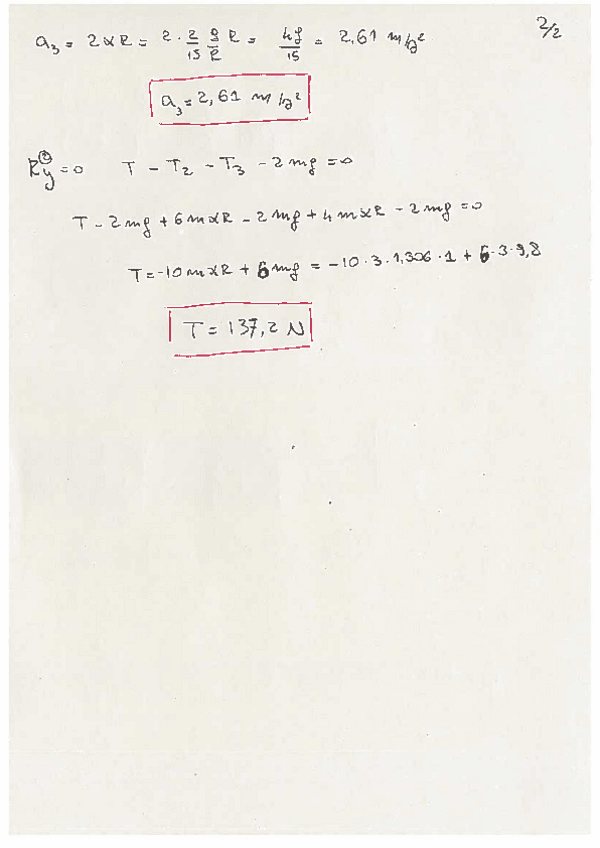 2/2
a₃ = 2αR = 2 · 2/15 g/R R = 4g/15 = 2,61 m/s²
a₃ = 2,61 m/s²
R_y^② = 0 T - T₂ - T₃ - 2mg = 0
T - 2mg + 6mαR - 2mg + 4mαR - 2mg = 0
T = -10mαR + 6mg = -10·3·1,306·1 + 6·3·9,8
T = 137,2 N